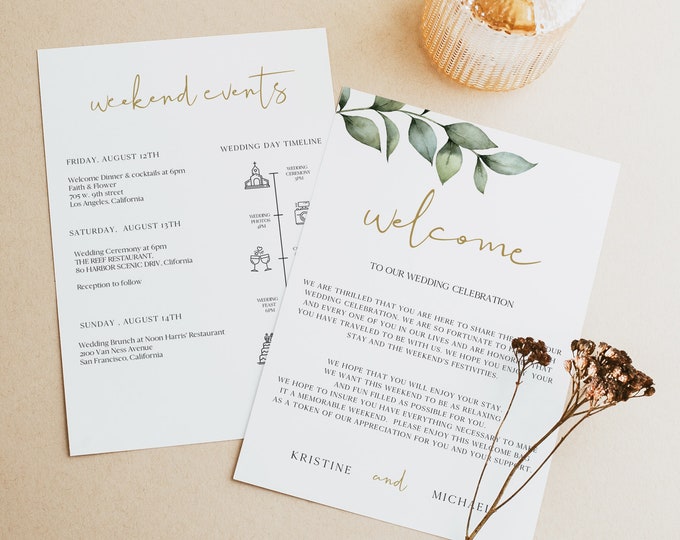 weekend events
FRIDAY, AUGUST 12TH
Welcome Dinner & cocktails at 6pm
Faith & Flower
705 w. 9th street
Los Angeles, California
SATURDAY, AUGUST 13TH
Wedding Ceremony at 6pm
THE REEF RESTAURANT,
80 HARBOR SCENIC DRIV, Clifornia
Reception to follow
SUNDAY , AUGUST 14TH
Wedding Brunch at Noon Harris' Restaurant
2100 Van Ness Avenue
San Francisco, California
WEDDING DAY TIMELINE
WEDDING
CEREMONY
3PM
WEDDING
PHOTOS
4PM
WEDDING
FEAST
6PM
welcome
TO OUR WEDDING CELEBRATION
WE ARE THRILLED THAT YOU ARE HERE TO SHARE THE OUR
WEDDING CELEBRATION. WE ARE SO FORTUNATE TO
AND EVERY ONE OF YOU IN OUR LIVES AND ARE HONORED THAT
YOU HAVE TRAVELED TO BE WITH US. WE HOPE YOU ENJOY YOUR
STAY AND THE WEEKEND'S FESTIVITIES.
WE HOPE THAT YOU WILL ENJOY YOUR STAY.
WE WANT THIS WEEKEND TO BE AS RELAXING
AND FUN FILLED AS POSSIBLE FOR YOU.
WE HOPE TO INSURE YOU HAVE EVERYTHING NECESSARY TO MAKE
IT A MEMORABLE WEEKEND. PLEASE ENJOY THIS WELCOME BAG
AS A TOKEN OF OUR APPRECIATION FOR YOU AND YOUR SUPPORT.
KRISTINE and MICHAEL